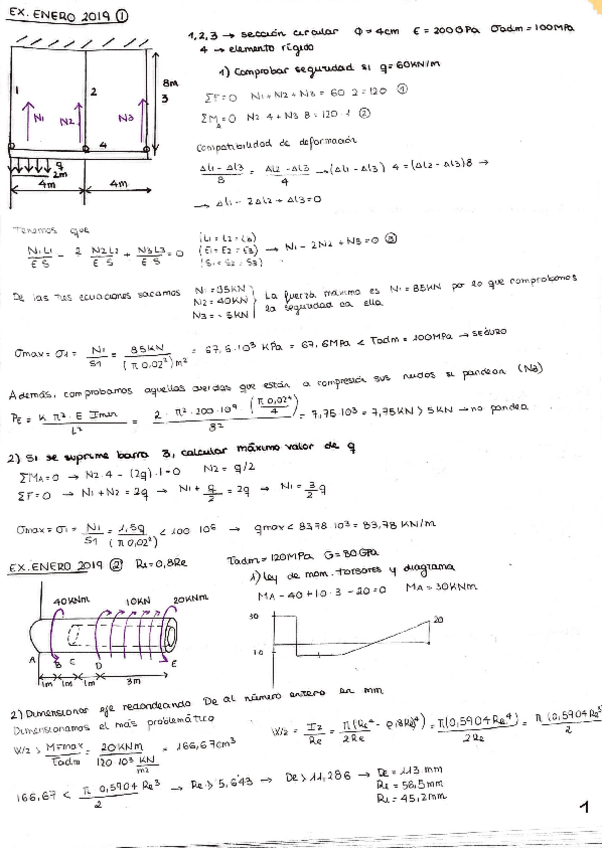 EX. ENERO 2019 ①
1,2,3 → sección circular Φ = 4cm E = 200GPa σadm = 100MPa
4 → elemento rígido
1) Comprobar seguridad si q = 60KN/m
ΣF=0 N1 + N2 + N3 = 60·2 = 120 ①
ΣMA=0 N2·4 + N3·8 = 120·1 ②
Compatibilidad de deformación
(ΔL1 - ΔL3)/8 = (ΔL2 - ΔL3)/4 → (ΔL1 - ΔL3) 4 = (ΔL2 - ΔL3) 8 →
→ ΔL1 - 2ΔL2 + ΔL3 = 0
1 2 8m 3
N1 N2 N3
4
q
2m
4m 4m
Tenemos que
N1L1/ES - 2 N2L2/ES + N3L3/ES = 0 (L1 = L2 = L3) (E1 = E2 = E3) (S1 = S2 = S3) → N1 - 2N2 + N3 = 0 ③
De las tres ecuaciones sacamos N1 = 85KN N2 = 40KN N3 = -5KN
La fuerza máxima es N1 = 85KN por lo que comprobamos
la seguridad en ella
σmax = σ1 = N1/S1 = 85KN/(π 0,02²)m² = 67,6·10³ KPa = 67,6MPa < σadm = 100MPa → SEGURO
Además, comprobamos aquellas que están a compresión si pandean (N3)
PE = K π² E Imin/L² = 2·π²·200·10⁹ (π 0,02⁴/4)/8² = 7,75·10³ = 7,75KN > 5KN → no pandea
2) Si se suprime barra 3, calcular máximo valor de q
ΣMA=0 → N2·4 - (2q)·1=0 N2 = q/2
ΣF=0 → N1 + N2 = 2q → N1 + q/2 = 2q → N1 = 3/2 q
σmax = σ1 = N1/S1 = 1,5q/(π 0,02²) < 100·10⁶ → qmax < 83,78·10³ = 83,78 KN/m
EX. ENERO 2019 ② Ri = 0,8Re τadm = 120MPa G = 80GPa
1) Ley de mom. torsores y diagrama
MA - 40 + 10·3 - 20 = 0 MA = 30KNm
40KNm 10KN 20KNm
A B C D E
1m 1m 1m 3m
30
10
20
2) Dimensionar eje redondeando De al número entero en mm
Dimensionamos el más problemático
W/2 > MTmax/τadm = 20KNm/(120·10³ KN/m²) = 166,67cm³
W/2 = Iz/Re = π(Re⁴ - 0,8Re⁴)/2Re = π(0,5904Re⁴)/2Re = π(0,5904Re³)/2
166,67 < π 0,5904Re³/2 → Re > 5,643 → De > 11,286 → De = 113 mm
Re = 56,5mm
Ri = 45,2mm
1